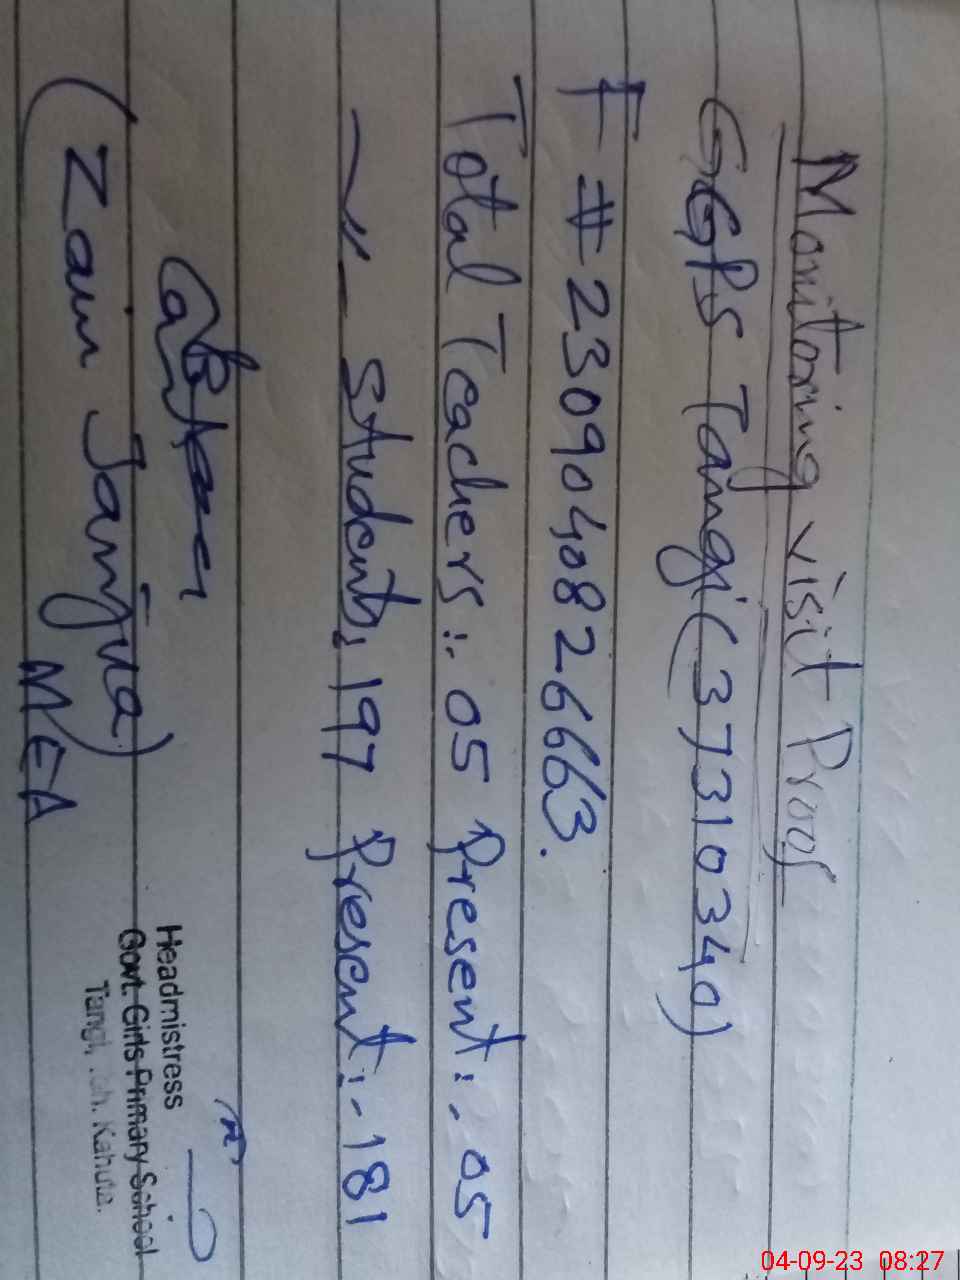 Monitoring visit Proof
GGPS Tangi (37310340)
F # 2309040826663.
Total Teachers:. 05 Present:. 05
〃 Students: 197 Present:- 181
(Zain Janjua)
MEA
Headmistress
Govt. Girls Primary School
Tangi, Teh. Kahuta.
04-09-23 08:27